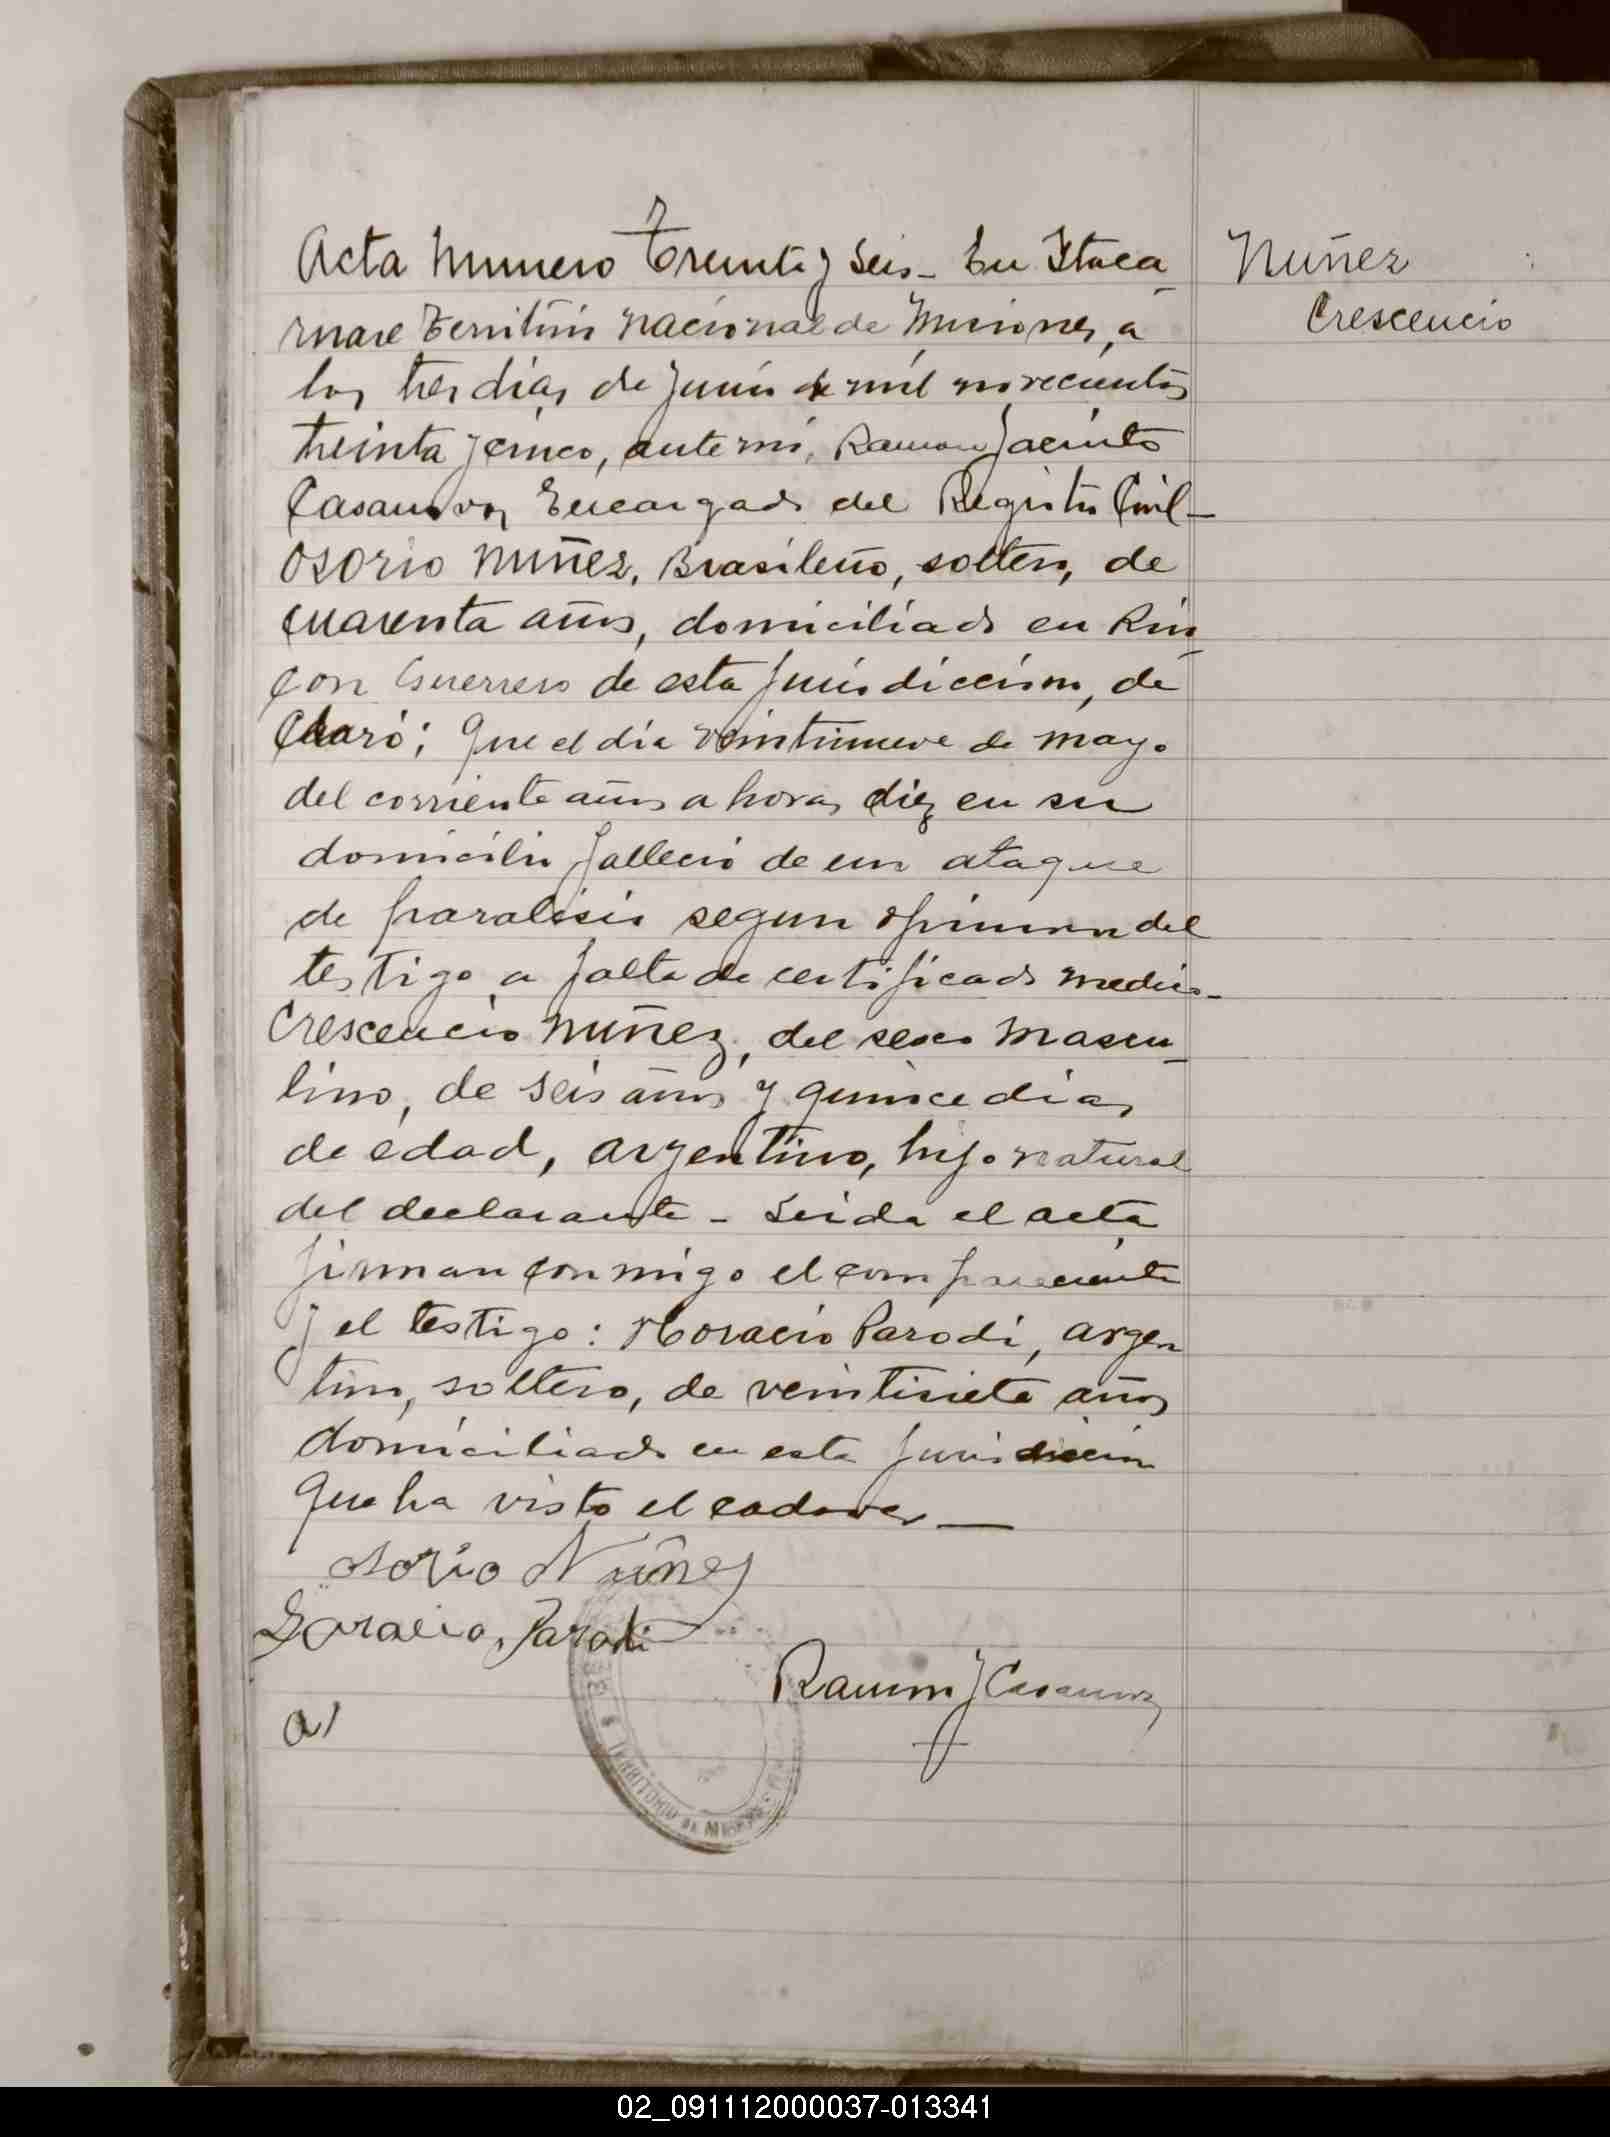 Acta Numero Treinta y Seis - En Itaca-
Nuñez
ruare Territorio Nacional de Misiones, a
Crescencio
los tres dias de Junio de mil novecientos
treinta y cinco, ante mi, Ramon Jacinto
Casanova, Encargado del Registro Civil-
Osorio Nuñez, Brasileño, soltero, de
cuarenta años, domiciliado en Rin-
con Guerrero de esta Jurisdiccion, de
claró; Que el dia veintinueve de mayo
del corriente año a horas diez en su
domicilio fallecio de un ataque
de paralisis segun opinion del
testigo a falta de certificado medico-
Crescencio Nuñez, del sexo Mascu-
lino, de seis años y quince dias
de edad, argentino, hijo natural
del declarante - Leida el acta
firman conmigo el compareciente
y el testigo: Horacio Parodi, argen
tino, soltero, de veintisiete años
domiciliado en esta Jurisdiccion
que ha visto el cadaver
Osorio Nuñez
Horacio Parodi
Ramon J Casanova
TERRITORIO DE MISIONES
02_091112000037-013341